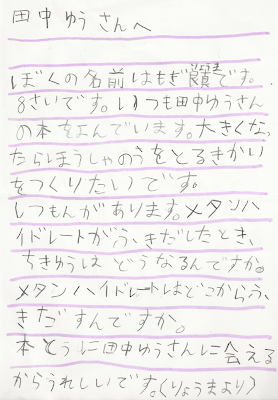 田中ゆうさんへ
ぼくの名前はもぎ りょうまです。
8さいです。いつも田中ゆうさん
の本をよんでいます。大きくな
たらほうしゃのうをとるきかい
をつくりたいです。
しつもんがあります。メタンハ
イドレートがふきだしたとき、
ちきゅうは どうなるんですか。
メタンハイドレートはどこからふ
きだすんですか。
本とうに田中ゆうさんに会える
からうれしいです。(りょうまより)